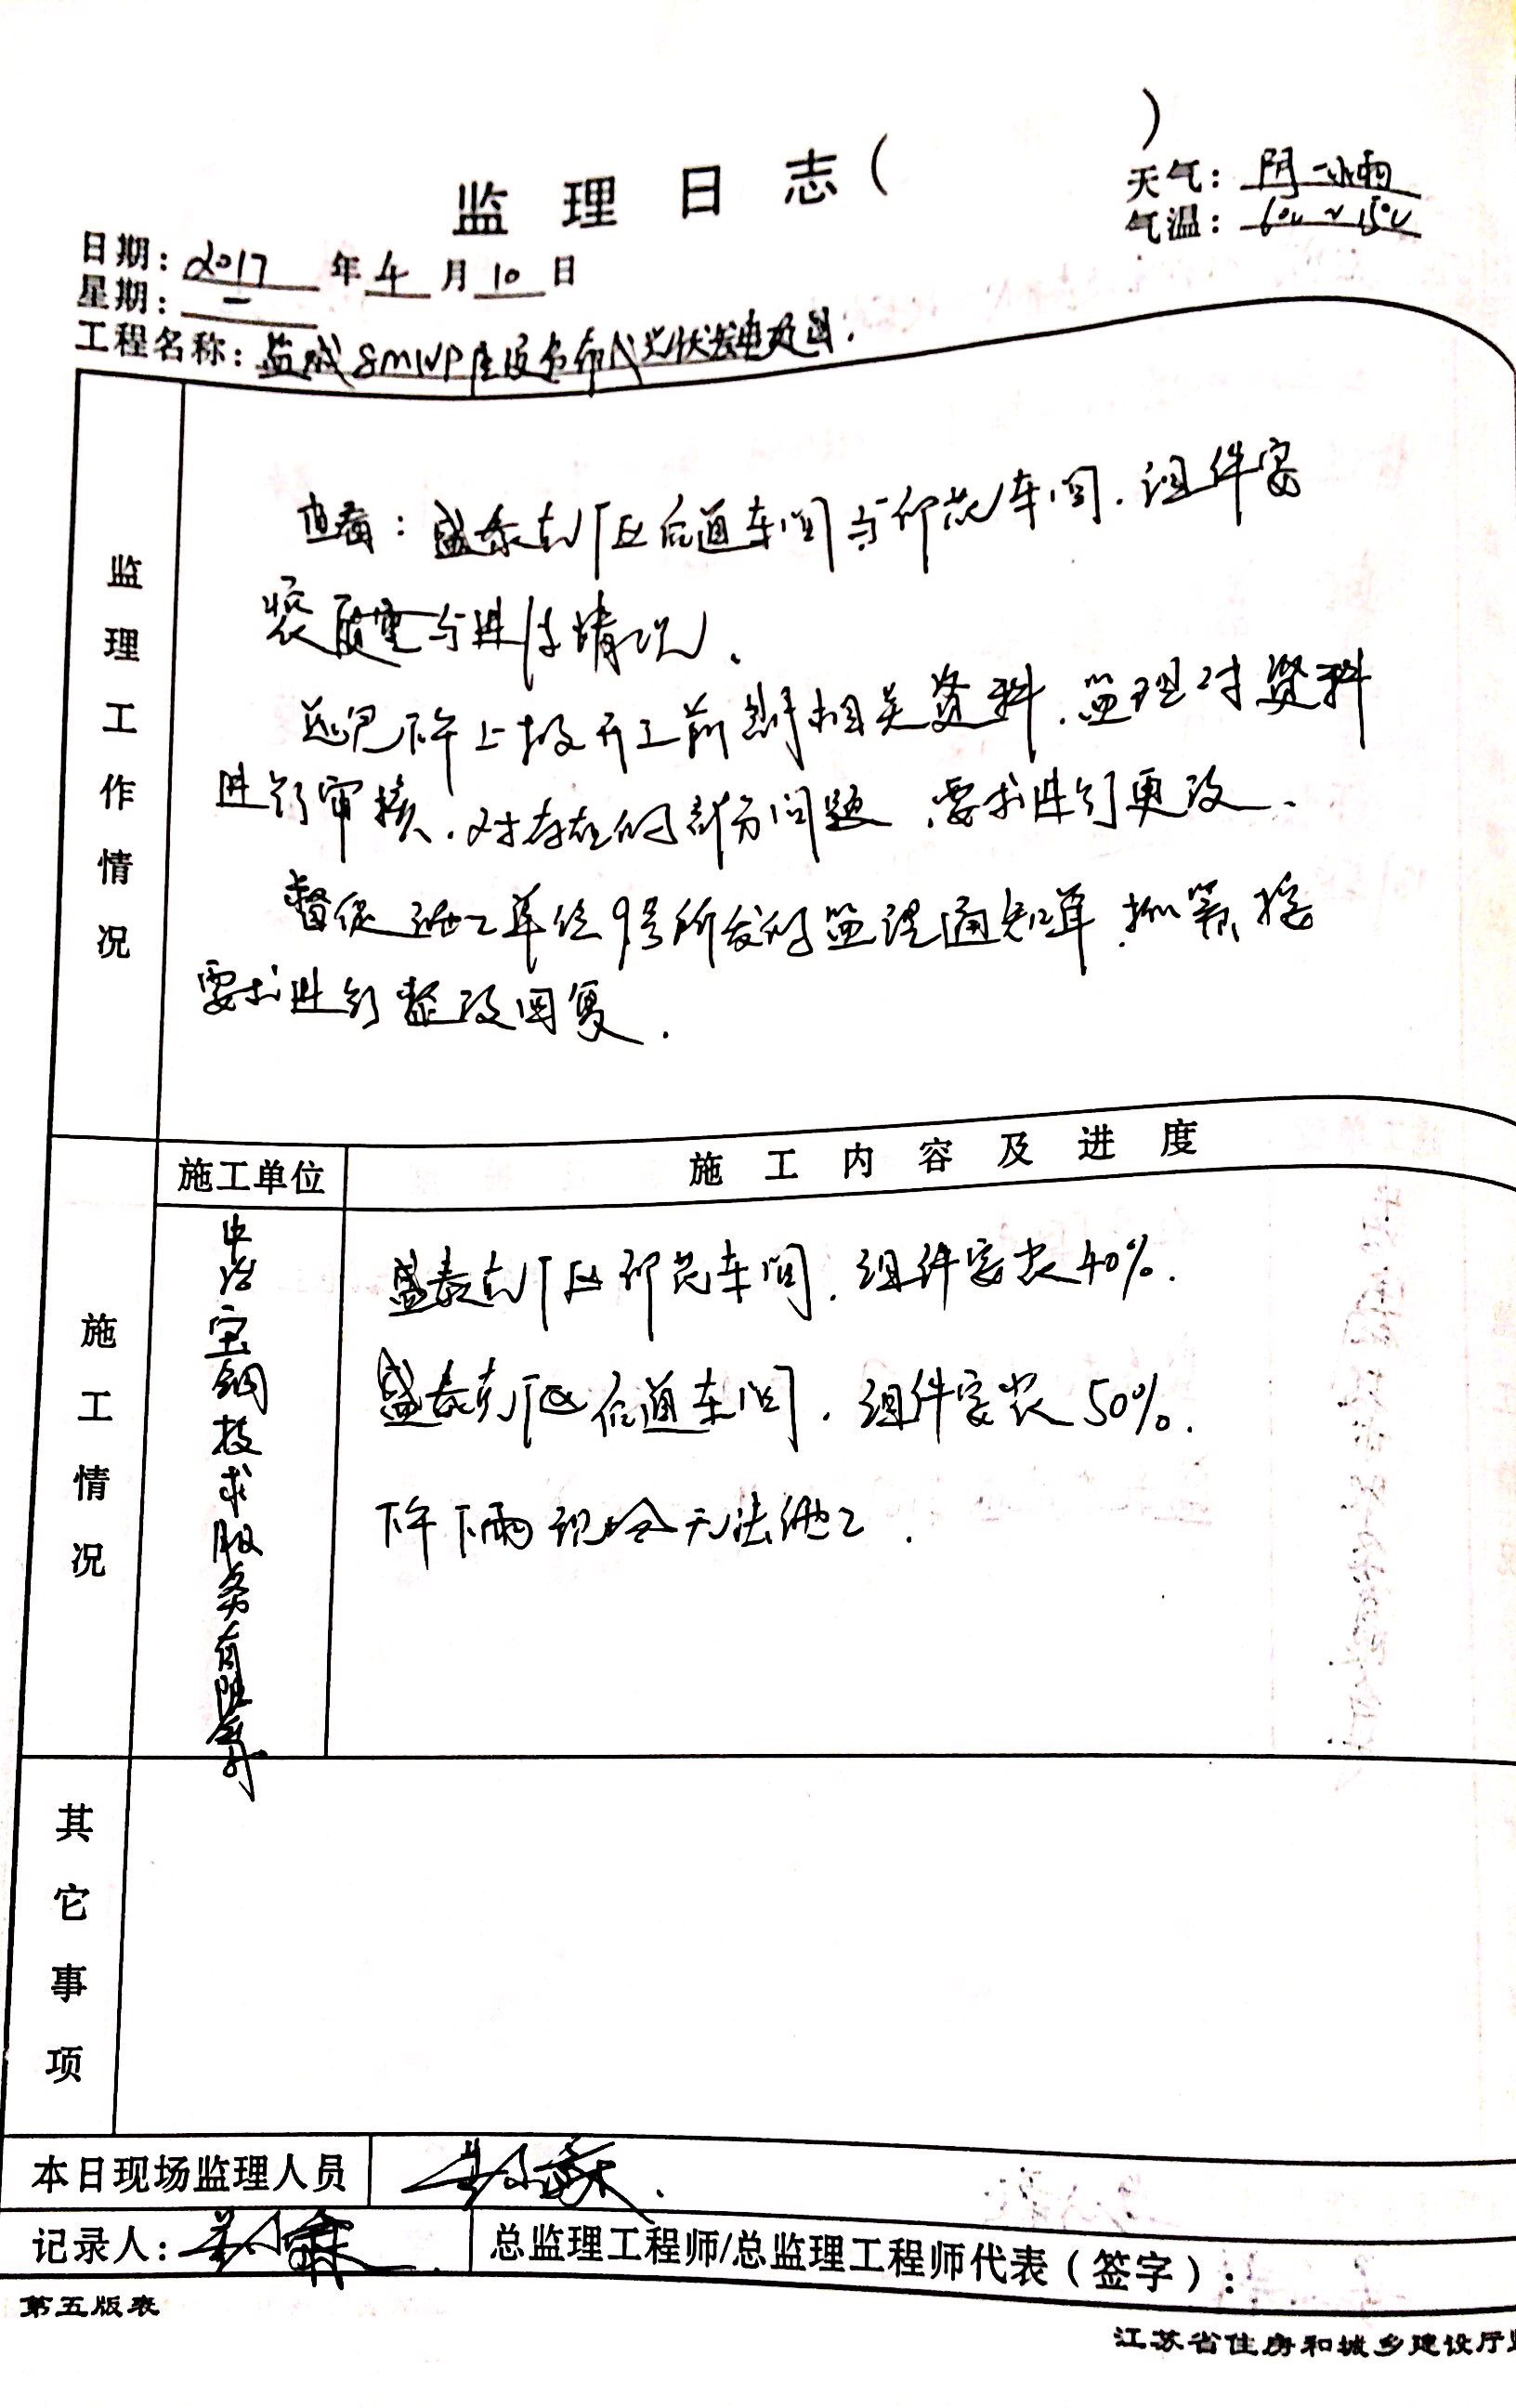 监理日志( )
天气：阴~小雨
气温：6℃~15℃
日期：2017年4月10日
星期：一
工程名称：盐城8MWP屋顶分布式光伏发电项目.
监理工作情况
查看：盛泰东厂区后道车间与印花车间.组件安
装质量与进行情况.
下午上报开工前期相关资料.监理对资料
进行审核.对存在的部分问题.要求进行更改.
督促施工单位9号所发的监理通知单.抓紧按
要求进行整改回复.
施工情况
施工单位
施工内容及进度
中冶宝钢技术服务有限公司
盛泰东厂区印花车间.组件安装40%.
盛泰东厂区后道车间.组件安装50%.
下午下雨现场无法施工.
其它事项
本日现场监理人员
记录人：
总监理工程师/总监理工程师代表（签字）：
第五版表
江苏省住房和城乡建设厅监